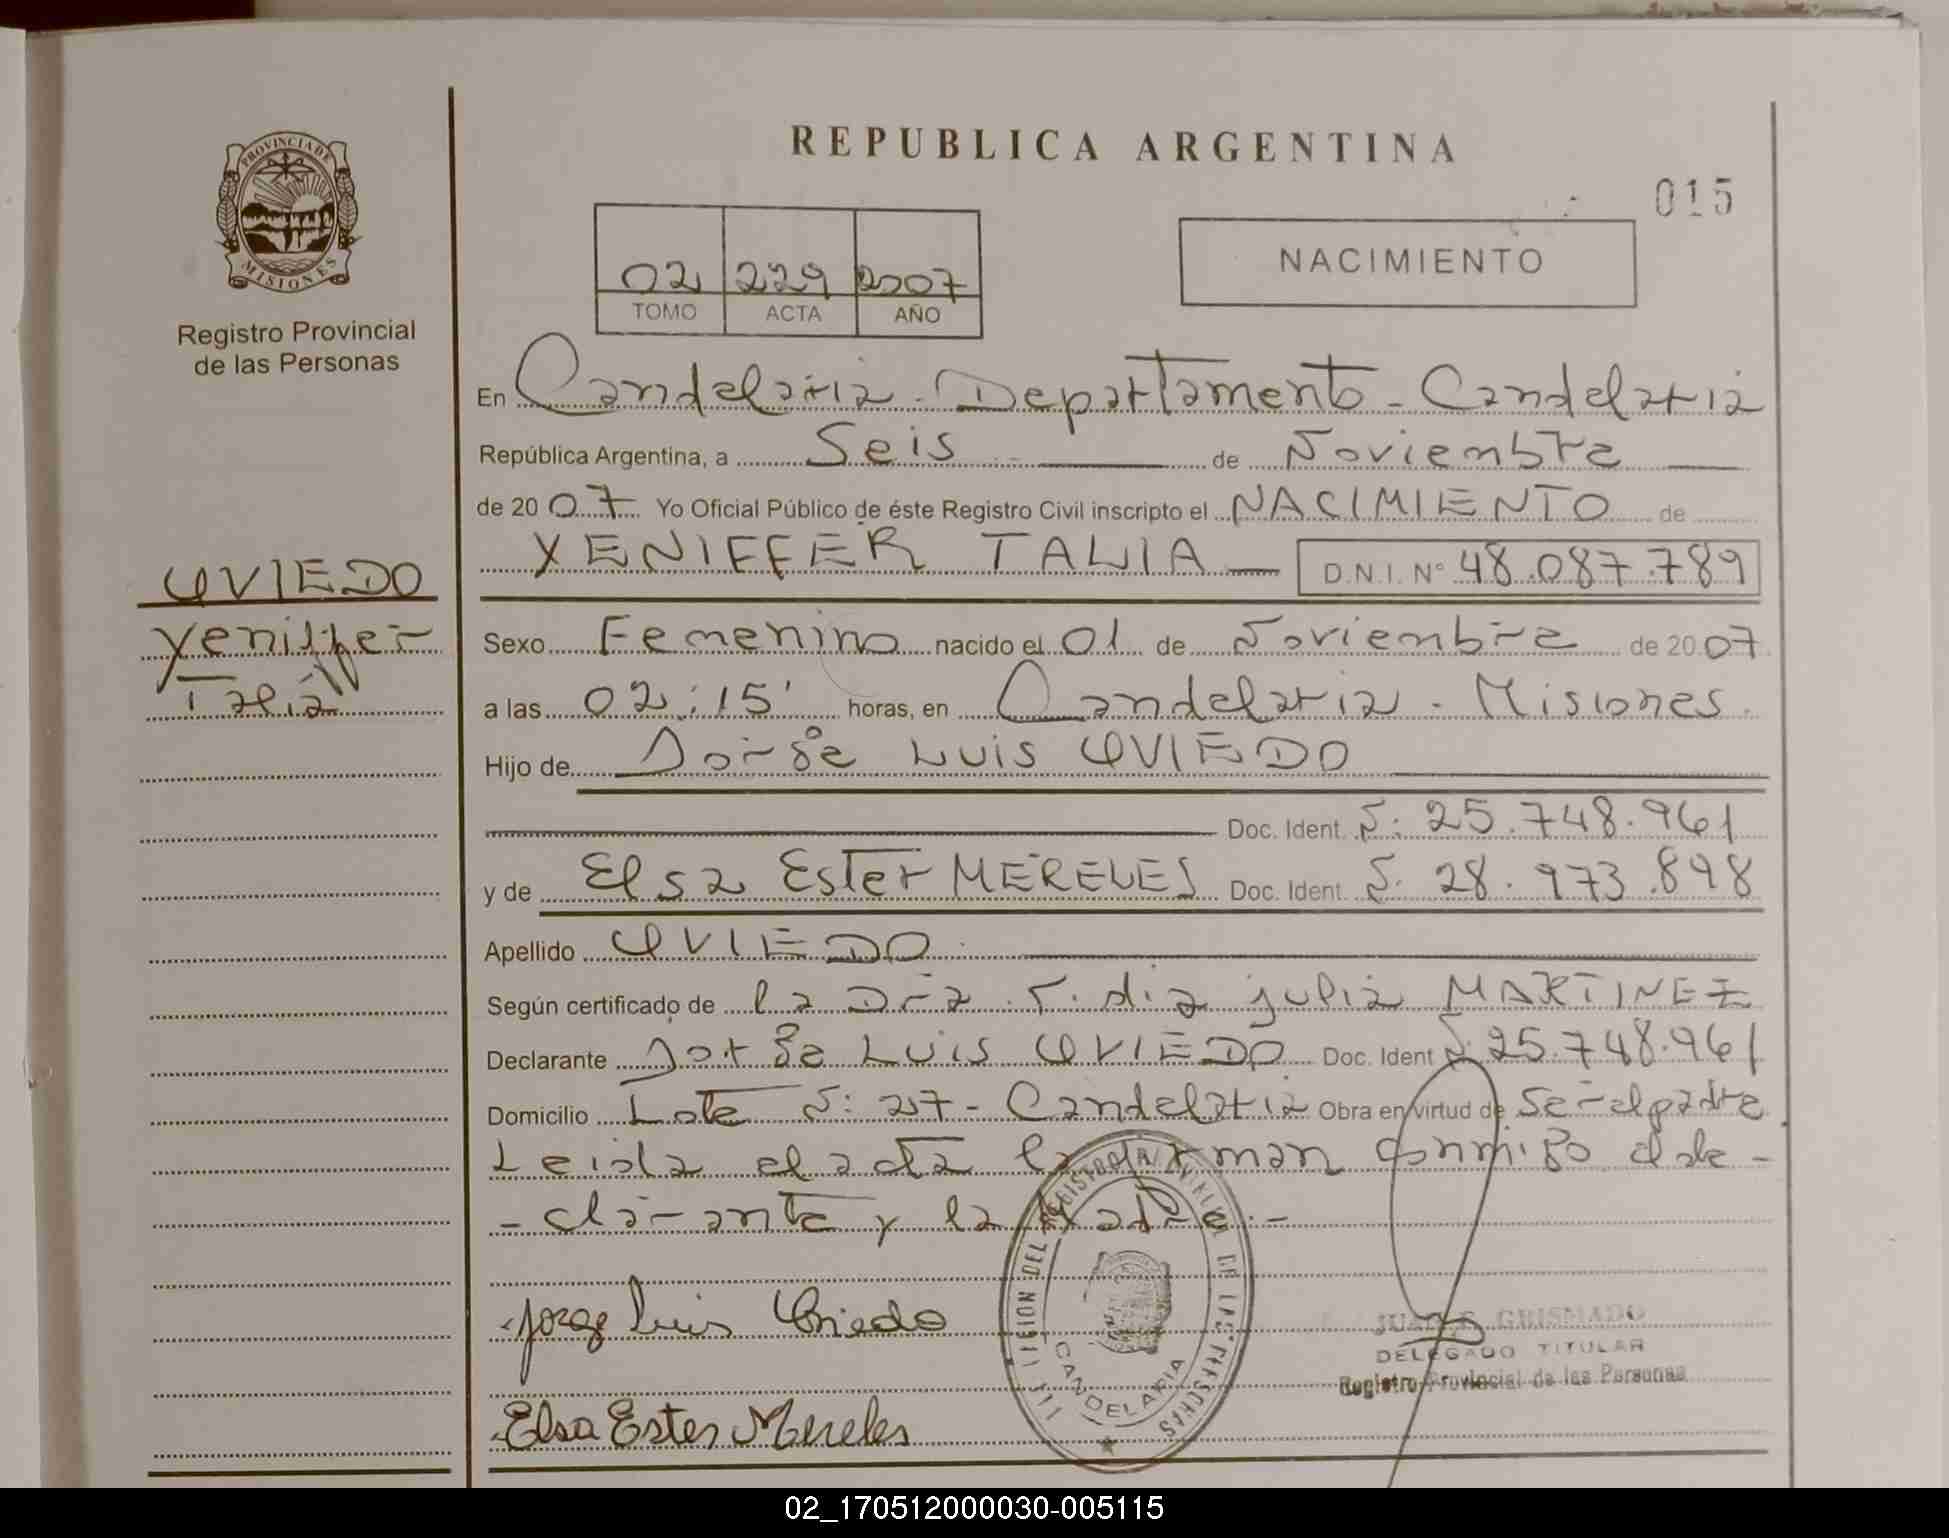 PROVINCIA DE
MISIONES
Registro Provincial
de las Personas
OVIEDO
Yeniffer
Talia
REPUBLICA ARGENTINA
015
02 229 2007
TOMO ACTA AÑO
NACIMIENTO
En Candelaria - Departamento - Candelaria
República Argentina, a Seis de Noviembre
de 2007 Yo Oficial Público de éste Registro Civil inscripto el NACIMIENTO de
YENIFFER TALIA D.N.I. Nº 48.087.789
Sexo Femenino nacido el 01 de Noviembre de 2007
a las 02:15' horas, en Candelaria - Misiones
Hijo de Jorge Luis OVIEDO
Doc. Ident. N: 25.748.961
y de Elsa Ester MERELES Doc. Ident. N: 28.973.898
Apellido OVIEDO
Según certificado de la Dra. julia MARTINEZ
Declarante Jorge Luis OVIEDO Doc. Ident N: 25.748.961
Domicilio Lote N: 217 - Candelaria Obra en virtud de Ser el padre
Leida el acta la firman conmigo el de-
-clarante y la Madre.-
Jorge Luis Oviedo
Elsa Ester Mereles
DEL REGISTRO PROVINCIAL DE LAS PERSONAS
CANDELARIA
GRISMADO
DELEGADO TITULAR
Registro Provincial de las Personas
02_170512000030-005115